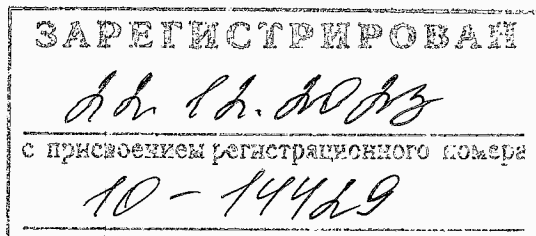 ЗАРЕГИСТРИРОВАН
22.12.2023
с присвоением регистрационного номера
10-14429